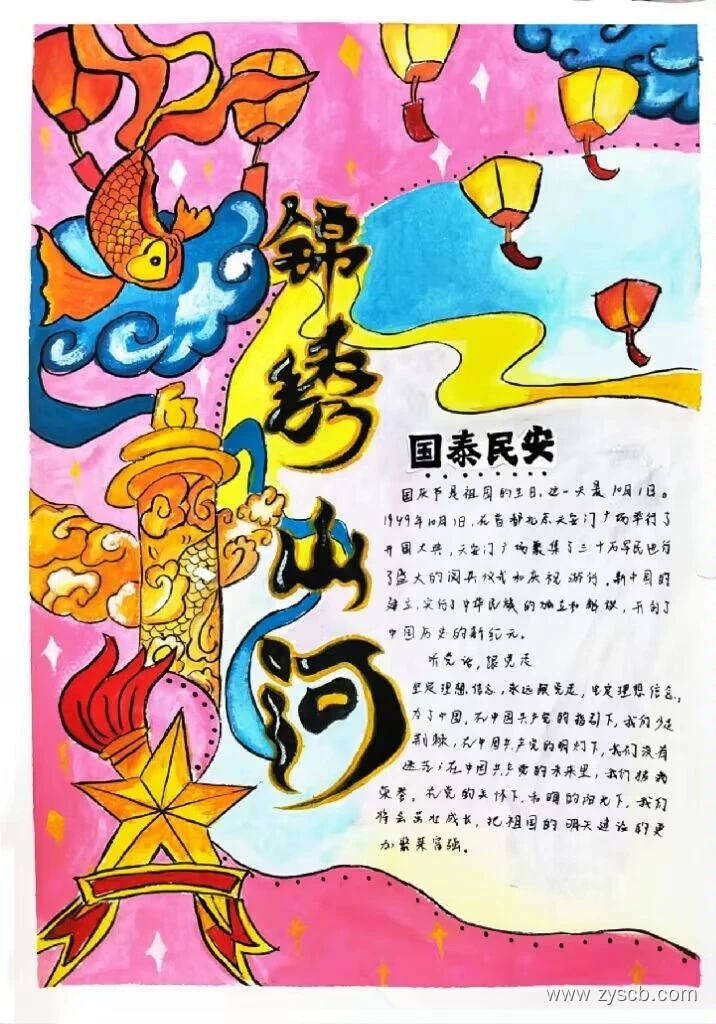 锦绣山河
国泰民安
国庆节是祖国的生日,这一天是10月1日。
1949年10月1日,在首都北京天安门广场举行了
开国大典,天安门广场聚集了三十万军民进行
了盛大的阅兵仪式和庆祝游行。新中国的
建立,实行了中华民族的独立和解放,开创了
中国历史的新纪元。
听党话,跟党走
坚定理想信念,永远跟党走,坚定理想信念,
为了中国,在中国共产党的指引下,我们
荆棘,在中国共产党的明灯下,我们没有
迷茫;在中国共产党的未来里,我们
荣誉。在党的关怀下,和明的阳光下,我们
将会茁壮成长,把祖国的明天建设的更
加繁荣富强。
www.zyscb.com